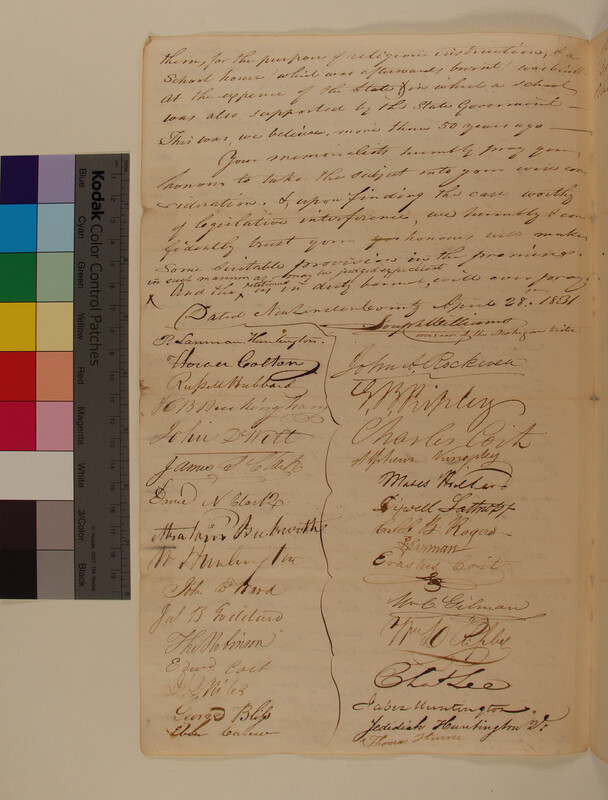 them, for the purpose of religious instruction, & a
School house (which was afterwards burnt) was built
at the expense of the State & in which a school
was also supported by the State Government —
This was, we believe, more than 50 years ago —
Your memorialists humbly pray your
honours to take the subject into your wise con
sideration, &, upon finding the case worthy
of legislative interference, we humbly & con
fidently trust your honours will make
Some suitable provision in the premises,
in such manner as may be judged expedient
And the Petitioners as in duty bound, will ever pray.
Dated New London County April 28. 1831
Joseph Williams
overseer of the Mohegan Tribe
Huntington.
Horace Colton
Russell Hubbard
Buckingham
John DWitt
James
N Clark
Abraham Beckwith
Huntington
John Ward
B Goddard
Thos Robinson
Coit
Niles
George Bliss
John A. Rockwell
Ripley
Charles Coit
Stephen Kingsley
Moses Hilliard
Lathrop
B. Rogers
Erastus Coit
Wm C. Gilman
Chas Lee
Jabez Huntington.
Jedidiah Huntington 2d.
Thomas
Kodak Color Control Patches
Blue
Cyan
Green
Yellow
Red
Magenta
White
3/Color
Black